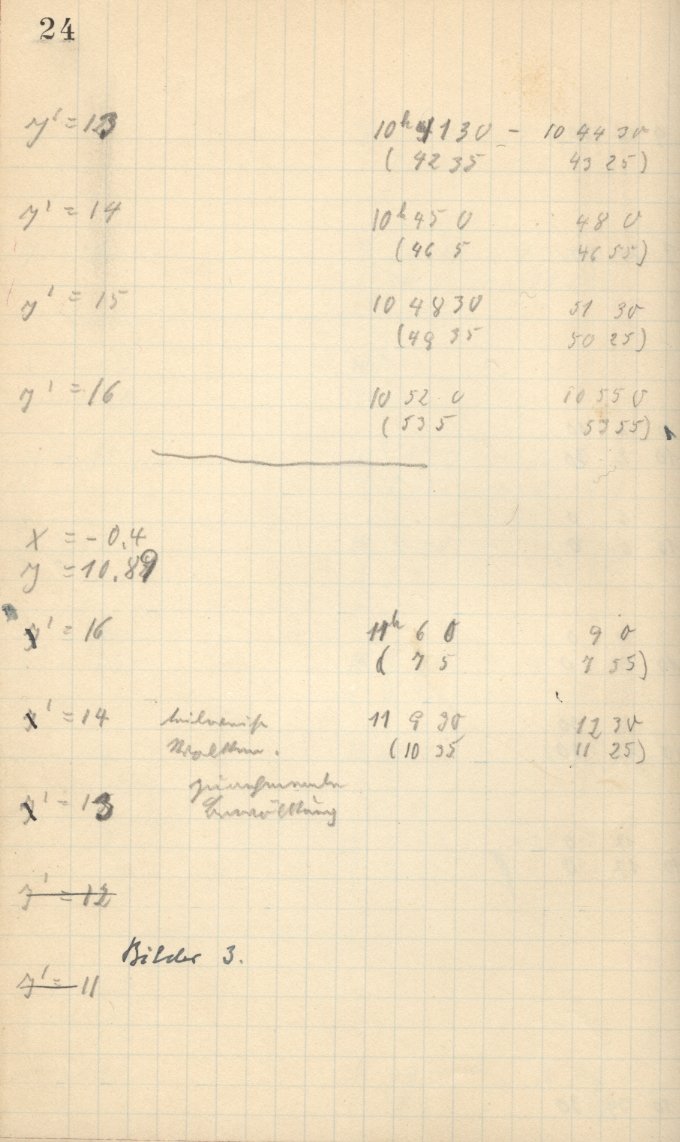 24
y' = 13 10h 41 30 - 10 44 30
( 42 35 43 25 )
y' = 14 10h 45 0 48 0
( 46 5 46 55 )
y' = 15 10 48 30 51 30
( 49 35 50 25 )
y' = 16 10 52 0 10 55 0
( 53 5 53 55 )
x = - 0.4
y = 10.89
x' = 16 11h 6 0 9 0
( 7 5 7 55 )
x' = 14 teilweise 11 9 30 12 30
Wolken. ( 10 35 11 25 )
zunehmende
x' = 13 Bewölkung
y' = 12
Bilder 3.
y' = 11